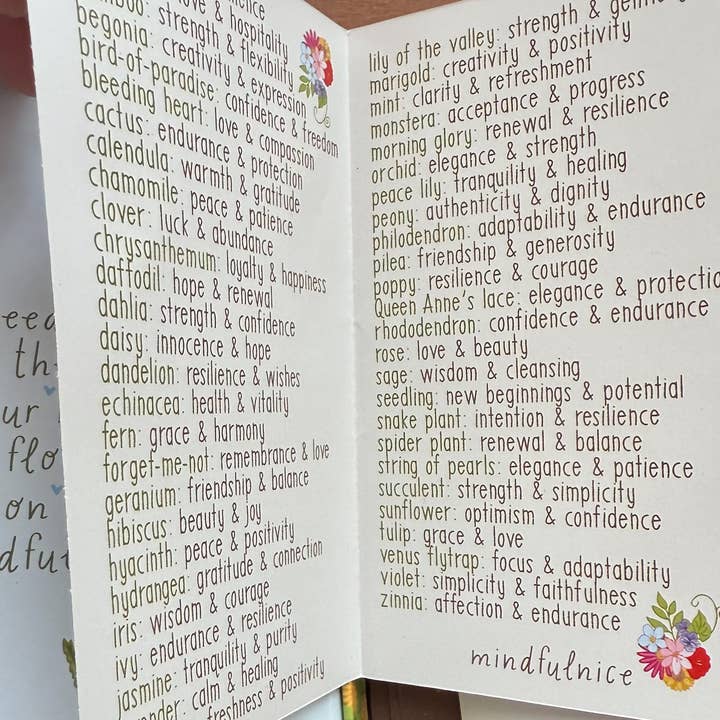 & hospitality
strength & flexibility
begonia: creativity & expression
bird-of-paradise: confidence & freedom
bleeding heart: love & compassion
cactus: endurance & protection
calendula: warmth & gratitude
chamomile: peace & patience
clover: luck & abundance
chrysanthemum: loyalty & happiness
daffodil: hope & renewal
dahlia: strength & confidence
daisy: innocence & hope
dandelion: resilience & wishes
echinacea: health & vitality
fern: grace & harmony
forget-me-not: remembrance & love
geranium: friendship & balance
hibiscus: beauty & joy
hyacinth: peace & positivity
hydrangea: gratitude & connection
iris: wisdom & courage
ivy: endurance & resilience
jasmine: tranquility & purity
calm & healing
freshness & positivity
lily of the valley: strength &
marigold: creativity & positivity
mint: clarity & refreshment
monstera: acceptance & progress
morning glory: renewal & resilience
orchid: elegance & strength
peace lily: tranquility & healing
peony: authenticity & dignity
philodendron: adaptability & endurance
pilea: friendship & generosity
poppy: resilience & courage
Queen Anne's lace: elegance & protectio
rhododendron: confidence & endurance
rose: love & beauty
sage: wisdom & cleansing
seedling: new beginnings & potential
snake plant: intention & resilience
spider plant: renewal & balance
string of pearls: elegance & patience
succulent: strength & simplicity
sunflower: optimism & confidence
tulip: grace & love
venus flytrap: focus & adaptability
violet: simplicity & faithfulness
zinnia: affection & endurance
mindfulnice